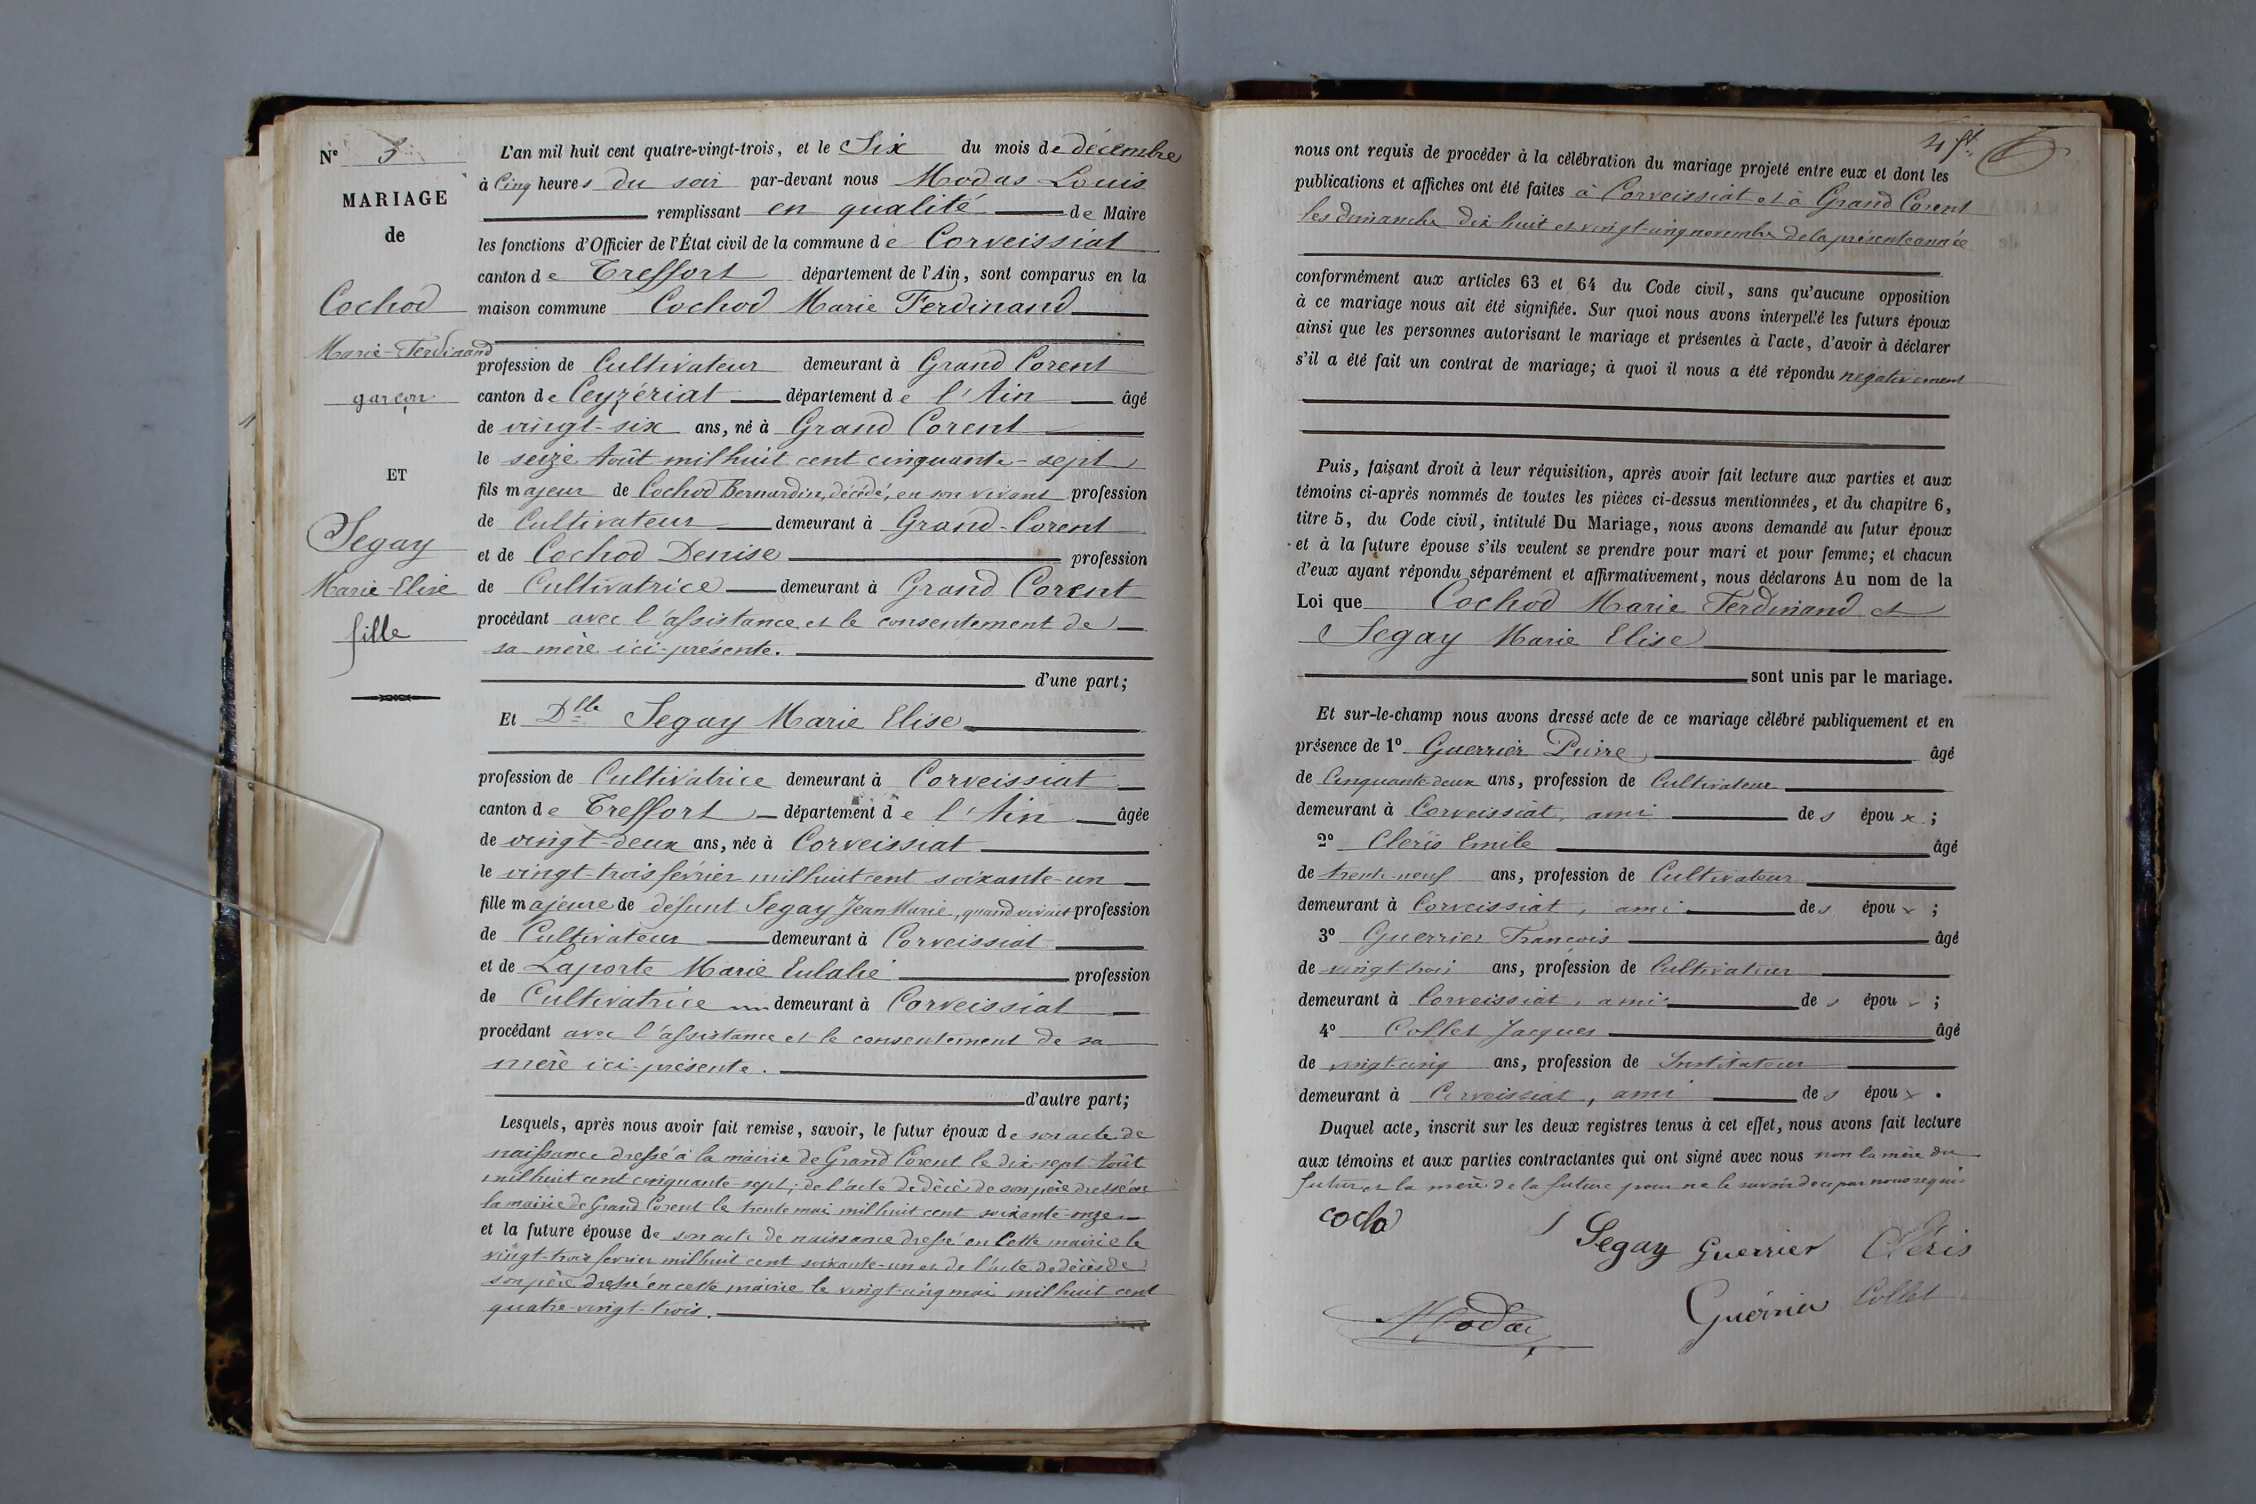 N° 5
MARIAGE
de
Cochod
Marie-Ferdinand
garçon
ET
Segay
Marie-Elise
fille
L'an mil huit cent quatre-vingt-trois, et le Six du mois de décembre
à Cinq heures du soir par-devant nous Modas Louis
remplissant en qualité de Maire
les fonctions d'Officier de l'État civil de la commune de Corveissiat
canton de Treffort département de l'Ain, sont comparus en la
maison commune Cochod Marie Ferdinand
profession de Cultivateur demeurant à Grand Corent
canton de Ceyzériat département de l'Ain âgé
de vingt-six ans, né à Grand Corent
le seize Août mil huit cent cinquante-sept
fils majeur de Cochod Bernardin, décédé, en son vivant profession
de Cultivateur demeurant à Grand-Corent
et de Cochod Denise profession
de Cultivatrice demeurant à Grand Corent
procédant avec l'assistance et le consentement de
sa mère ici-présente.
d'une part;
Et Dlle Segay Marie Elise
profession de Cultivatrice demeurant à Corveissiat
canton de Treffort département de l'Ain âgée
de vingt-deux ans, née à Corveissiat
le vingt-trois février mil huit cent soixante-un
fille majeure de défunt Segay Jean Marie, quand vivait profession
de Cultivateur demeurant à Corveissiat
et de Laporte Marie Eulalie profession
de Cultivatrice demeurant à Corveissiat
procédant avec l'assistance et le consentement de sa
mère ici-présente.
d'autre part;
Lesquels, après nous avoir fait remise, savoir, le futur époux de son acte de
naissance dressé à la mairie de Grand Corent le dix-sept Août
mil huit cent cinquante-sept; de l'acte de décès de son père dressé à
la mairie de Grand Corent le trente mai mil huit cent soixante-onze
et la future épouse de son acte de naissance dressé en cette mairie le
vingt-trois février mil huit cent soixante-un et de l'acte de décès de
son père dressé en cette mairie le vingt-cinq mai mil huit cent
quatre-vingt-trois.
nous ont requis de procéder à la célébration du mariage projeté entre eux et dont les
publications et affiches ont été faites à Corveissiat et à Grand Corent
les dimanche dix huit et vingt-cinq novembre de la présente année
conformément aux articles 63 et 64 du Code civil, sans qu'aucune opposition
à ce mariage nous ait été signifiée. Sur quoi nous avons interpellé les futurs époux
ainsi que les personnes autorisant le mariage et présentes à l'acte, d'avoir à déclarer
s'il a été fait un contrat de mariage; à quoi il nous a été répondu négativement
Puis, faisant droit à leur réquisition, après avoir fait lecture aux parties et aux
témoins ci-après nommés de toutes les pièces ci-dessus mentionnées, et du chapitre 6,
titre 5, du Code civil, intitulé Du Mariage, nous avons demandé au futur époux
et à la future épouse s'ils veulent se prendre pour mari et pour femme; et chacun
d'eux ayant répondu séparément et affirmativement, nous déclarons Au nom de la
Loi que Cochod Marie Ferdinand et
Segay Marie Elise
sont unis par le mariage.
Et sur-le-champ nous avons dressé acte de ce mariage célébré publiquement et en
présence de 1° Guerrier Pierre âgé
de Cinquante-deux ans, profession de Cultivateur
demeurant à Corveissiat, ami des époux;
2° Cléris Emile âgé
de trente-neuf ans, profession de Cultivateur
demeurant à Corveissiat, ami des époux;
3° Guerrier François âgé
de vingt trois ans, profession de Cultivateur
demeurant à Corveissiat, ami des époux;
4° Collet Jacques âgé
de vingt-cinq ans, profession de Instituteur
demeurant à Corveissiat, ami des époux.
Duquel acte, inscrit sur les deux registres tenus à cet effet, nous avons fait lecture
aux témoins et aux parties contractantes qui ont signé avec nous non la mère du
futur et la mère de la future pour ne le savoir de ce par nous requis
Segay Guerrier Cléris
Guérrier Collet
Modas